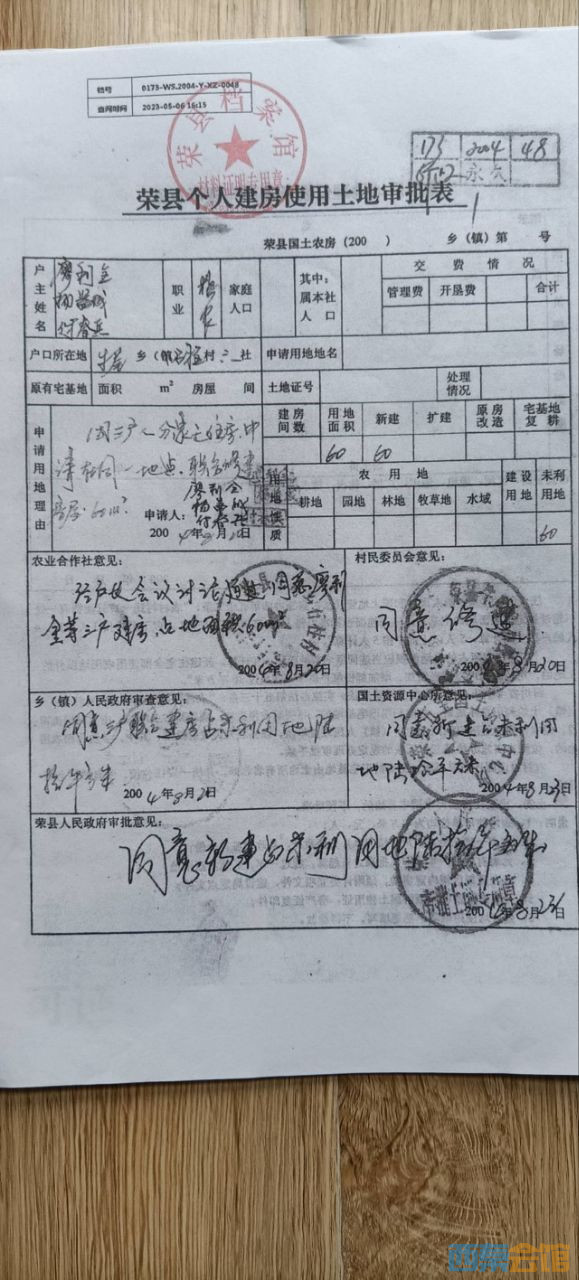 档号 0173-WS.2004-Y-XZ-0048
查阅时间 2023-05-06 16:15
荣县档案馆
材料证明专用章
173 2004 48
永久
荣县个人建房使用土地审批表
荣县国土农房(200 ) 乡(镇)第 号
户主姓名 廖利全
付春兵
职业 务农
家庭人口
其中:属本社人口
交费情况
管理费 开垦费 合计
户口所在地 乡(镇) 村 社 申请用地地名
原有宅基地 面积 m² 房屋 间 土地证号 处理情况
申请用地理由
因三户人分家无住房.申
请在同一地点.联合修建
住房.60m²
申请人:廖利全
付春兵
2004年8月20日
建房间数 用地面积 新建 扩建 原房改造 宅基地复耕
60 60
用地性质
农用地 建设用地 未利用地
耕地 园地 林地 牧草地 水域
60
农业合作社意见:
经户代会议讨论通过同意廖利
全等三户建房占地面积60m²
2004年8月20日
村民委员会意见:
同意修建.
2004年8月20日
乡(镇)人民政府审查意见:
同意三户联合建房占未利用地陆
拾平方米 2004年8月21日
国土资源中心所意见:
同意新建占未利用
地陆拾平方米
2004年8月23日
荣县人民政府审批意见:
同意新建占未利用地陆拾平方米
2004年8月23日
西票会馆